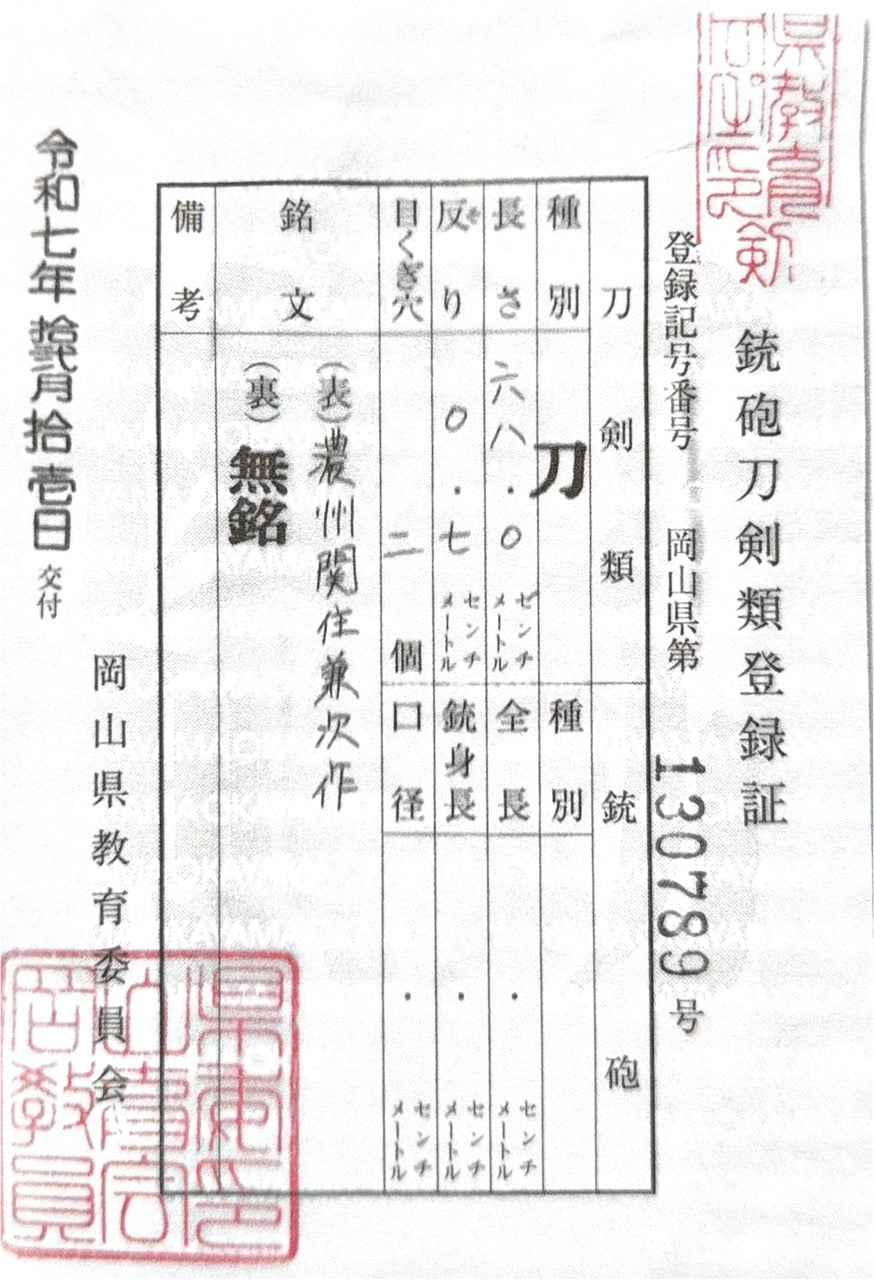 銃砲刀剣類登録証
登録記号番号 岡山県第 130789 号
刀剣類
銃砲
種別 刀
種別
長さ 六八.〇 センチメートル
全長 . センチメートル
反り 〇.七 センチメートル
銃身長 . センチメートル
目くぎ穴 二 個
口径 . センチメートル
銘文
(表) 濃州関住兼次作
(裏) 無銘
備考
令和七年 拾弐月 拾壱日 交付
岡山県教育委員会